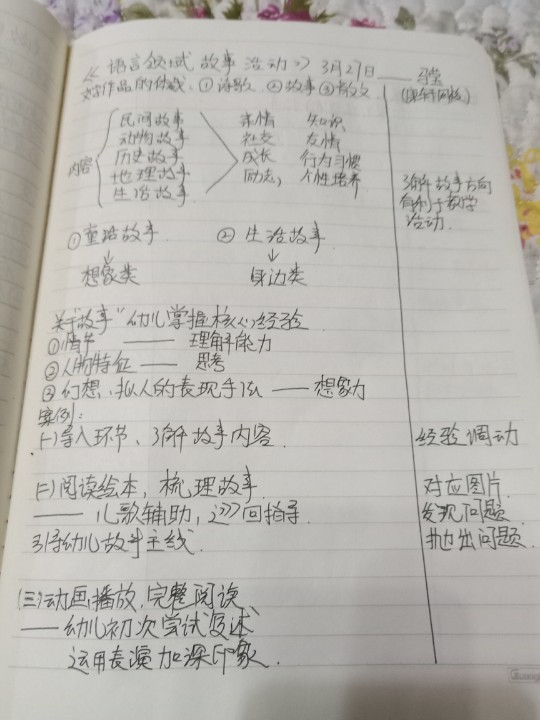 《语言领域 故事 活动》 3月27日
文学作品的体裁：①诗歌 ②故事 ③散文
内容
民间故事
动物故事
历史故事
地理故事
生活故事
亲情 知识
社交 友情
成长 行为习惯
励志， 个性培养
了解故事方向
有利于教学
活动.
①童话故事 ② 生活故事
↓ ↓
想象类 身边类
关于"故事"幼儿掌握核心经验
①情节 —— 理解能力
②人物特征 —— 思考
③幻想、拟人的表现手法 —— 想象力
案例：
(一)导入环节、了解故事内容. 经验调动
(二)阅读绘本，梳理故事. 对应图片.
—— 儿歌辅助，逐回指导. 发现问题.
引导幼儿故事主线. 抛出问题.
(三)动画播放，完整阅读
—— 幼儿初次尝试复述
运用表演加深印象.